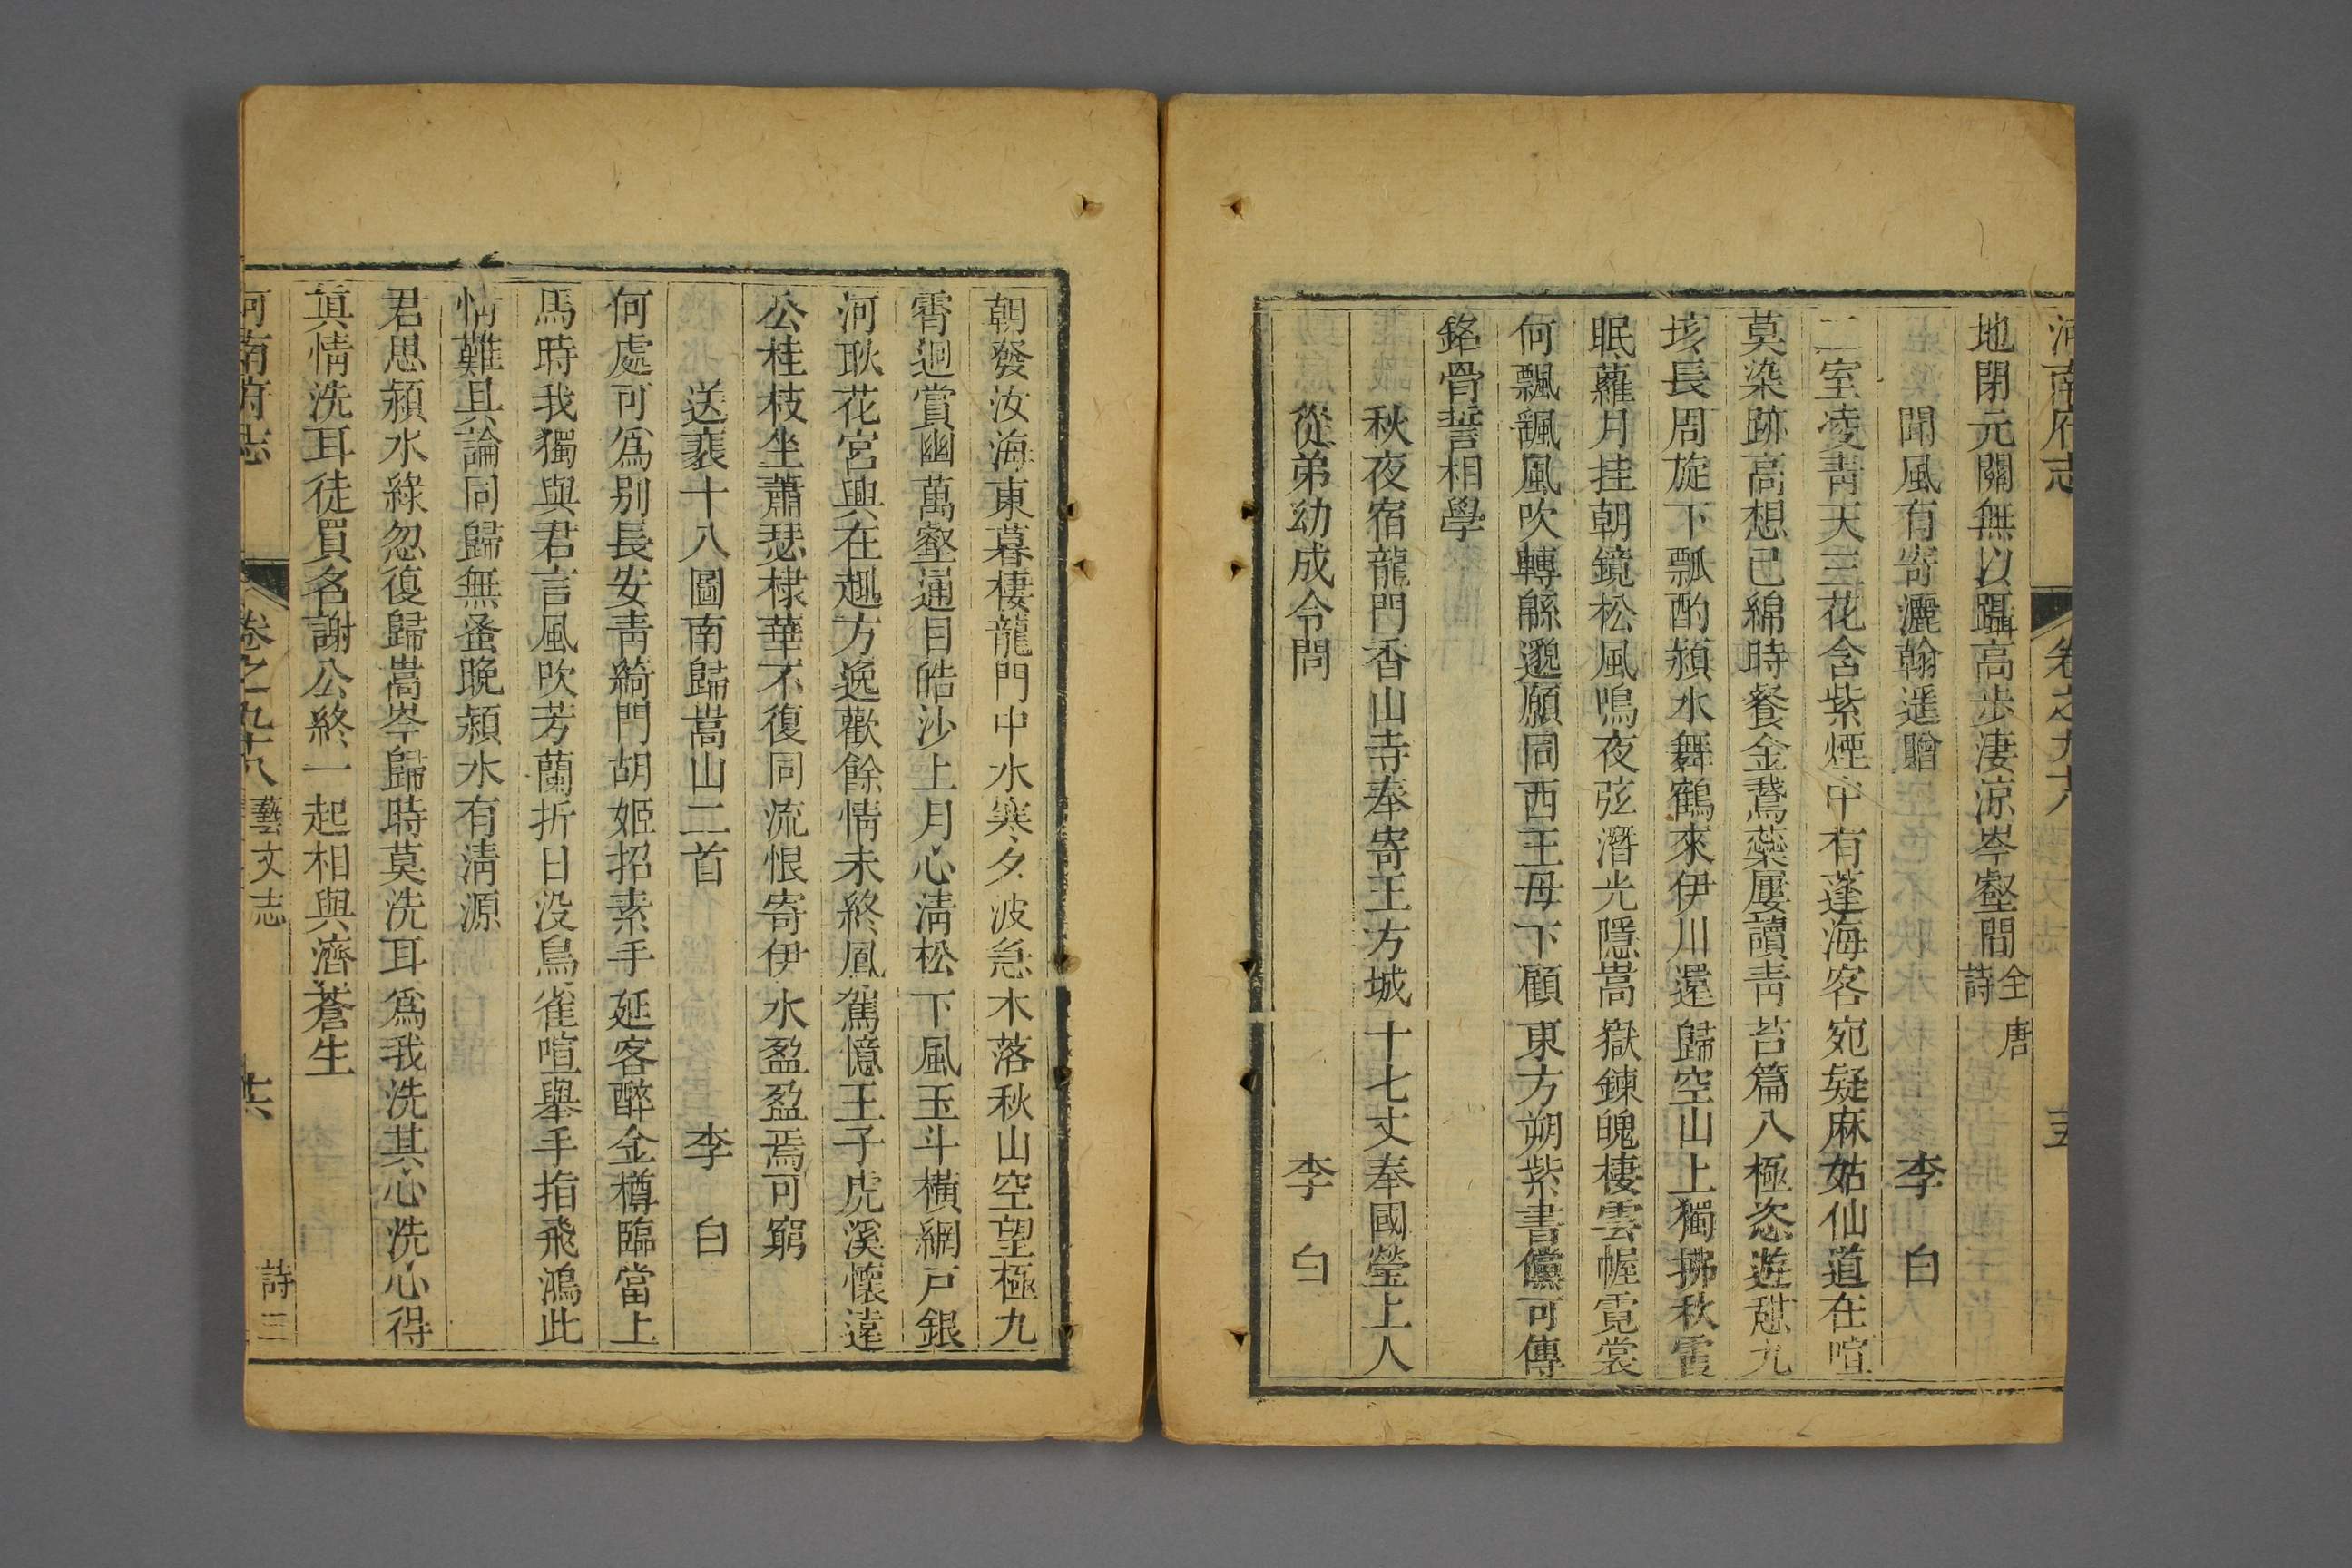 河南府志 卷之九十八 五
地閉元關無以躡高步淒涼岑壑間全唐詩
聞風有寄灑翰遥贈 李白
二室凌靑天三花含紫煙中有蓬海客宛疑麻姑仙道在喧
莫染跡高想已綿時餐金鵞蘂屢讀靑苔篇八極恣遊憇九
垓長周旋下瓢酌潁水舞鶴來伊川還歸空山上獨拂秋霞
眠蘿月挂朝鏡松風鳴夜弦潛光隱嵩嶽鍊魄棲雲幄霓裳
何飄颻風吹轉緜邈願同西王母下顧東方朔紫書儻可傳
銘骨誓相學
秋夜宿龍門香山寺奉寄王方城十七丈奉國瑩上人
從弟幼成令問 李白
朝發汝海東暮棲龍門中水寒夕波急木落秋山空望極九
霄迥賞幽萬壑通目皓沙上月心淸松下風玉斗橫網戸銀
河耿花宮興在趣方逸歡餘情未終鳳駕憶王子虎溪懷遠
公桂枝坐蕭瑟棣華不復同流恨寄伊水盈盈焉可窮
送裴十八圖南歸嵩山二首 李白
何處可爲別長安靑綺門胡姬招素手延客醉金樽臨當上
馬時我獨與君言風吹芳蘭折日没鳥雀喧舉手指飛鴻此
情難具論同歸無蚤晚潁水有淸源
君思潁水綠忽復歸嵩岑歸時莫洗耳爲我洗其心洗心得
眞情洗耳徒買名謝公終一起相與濟蒼生
河南府志 卷之九十八 藝文志 詩三 十六